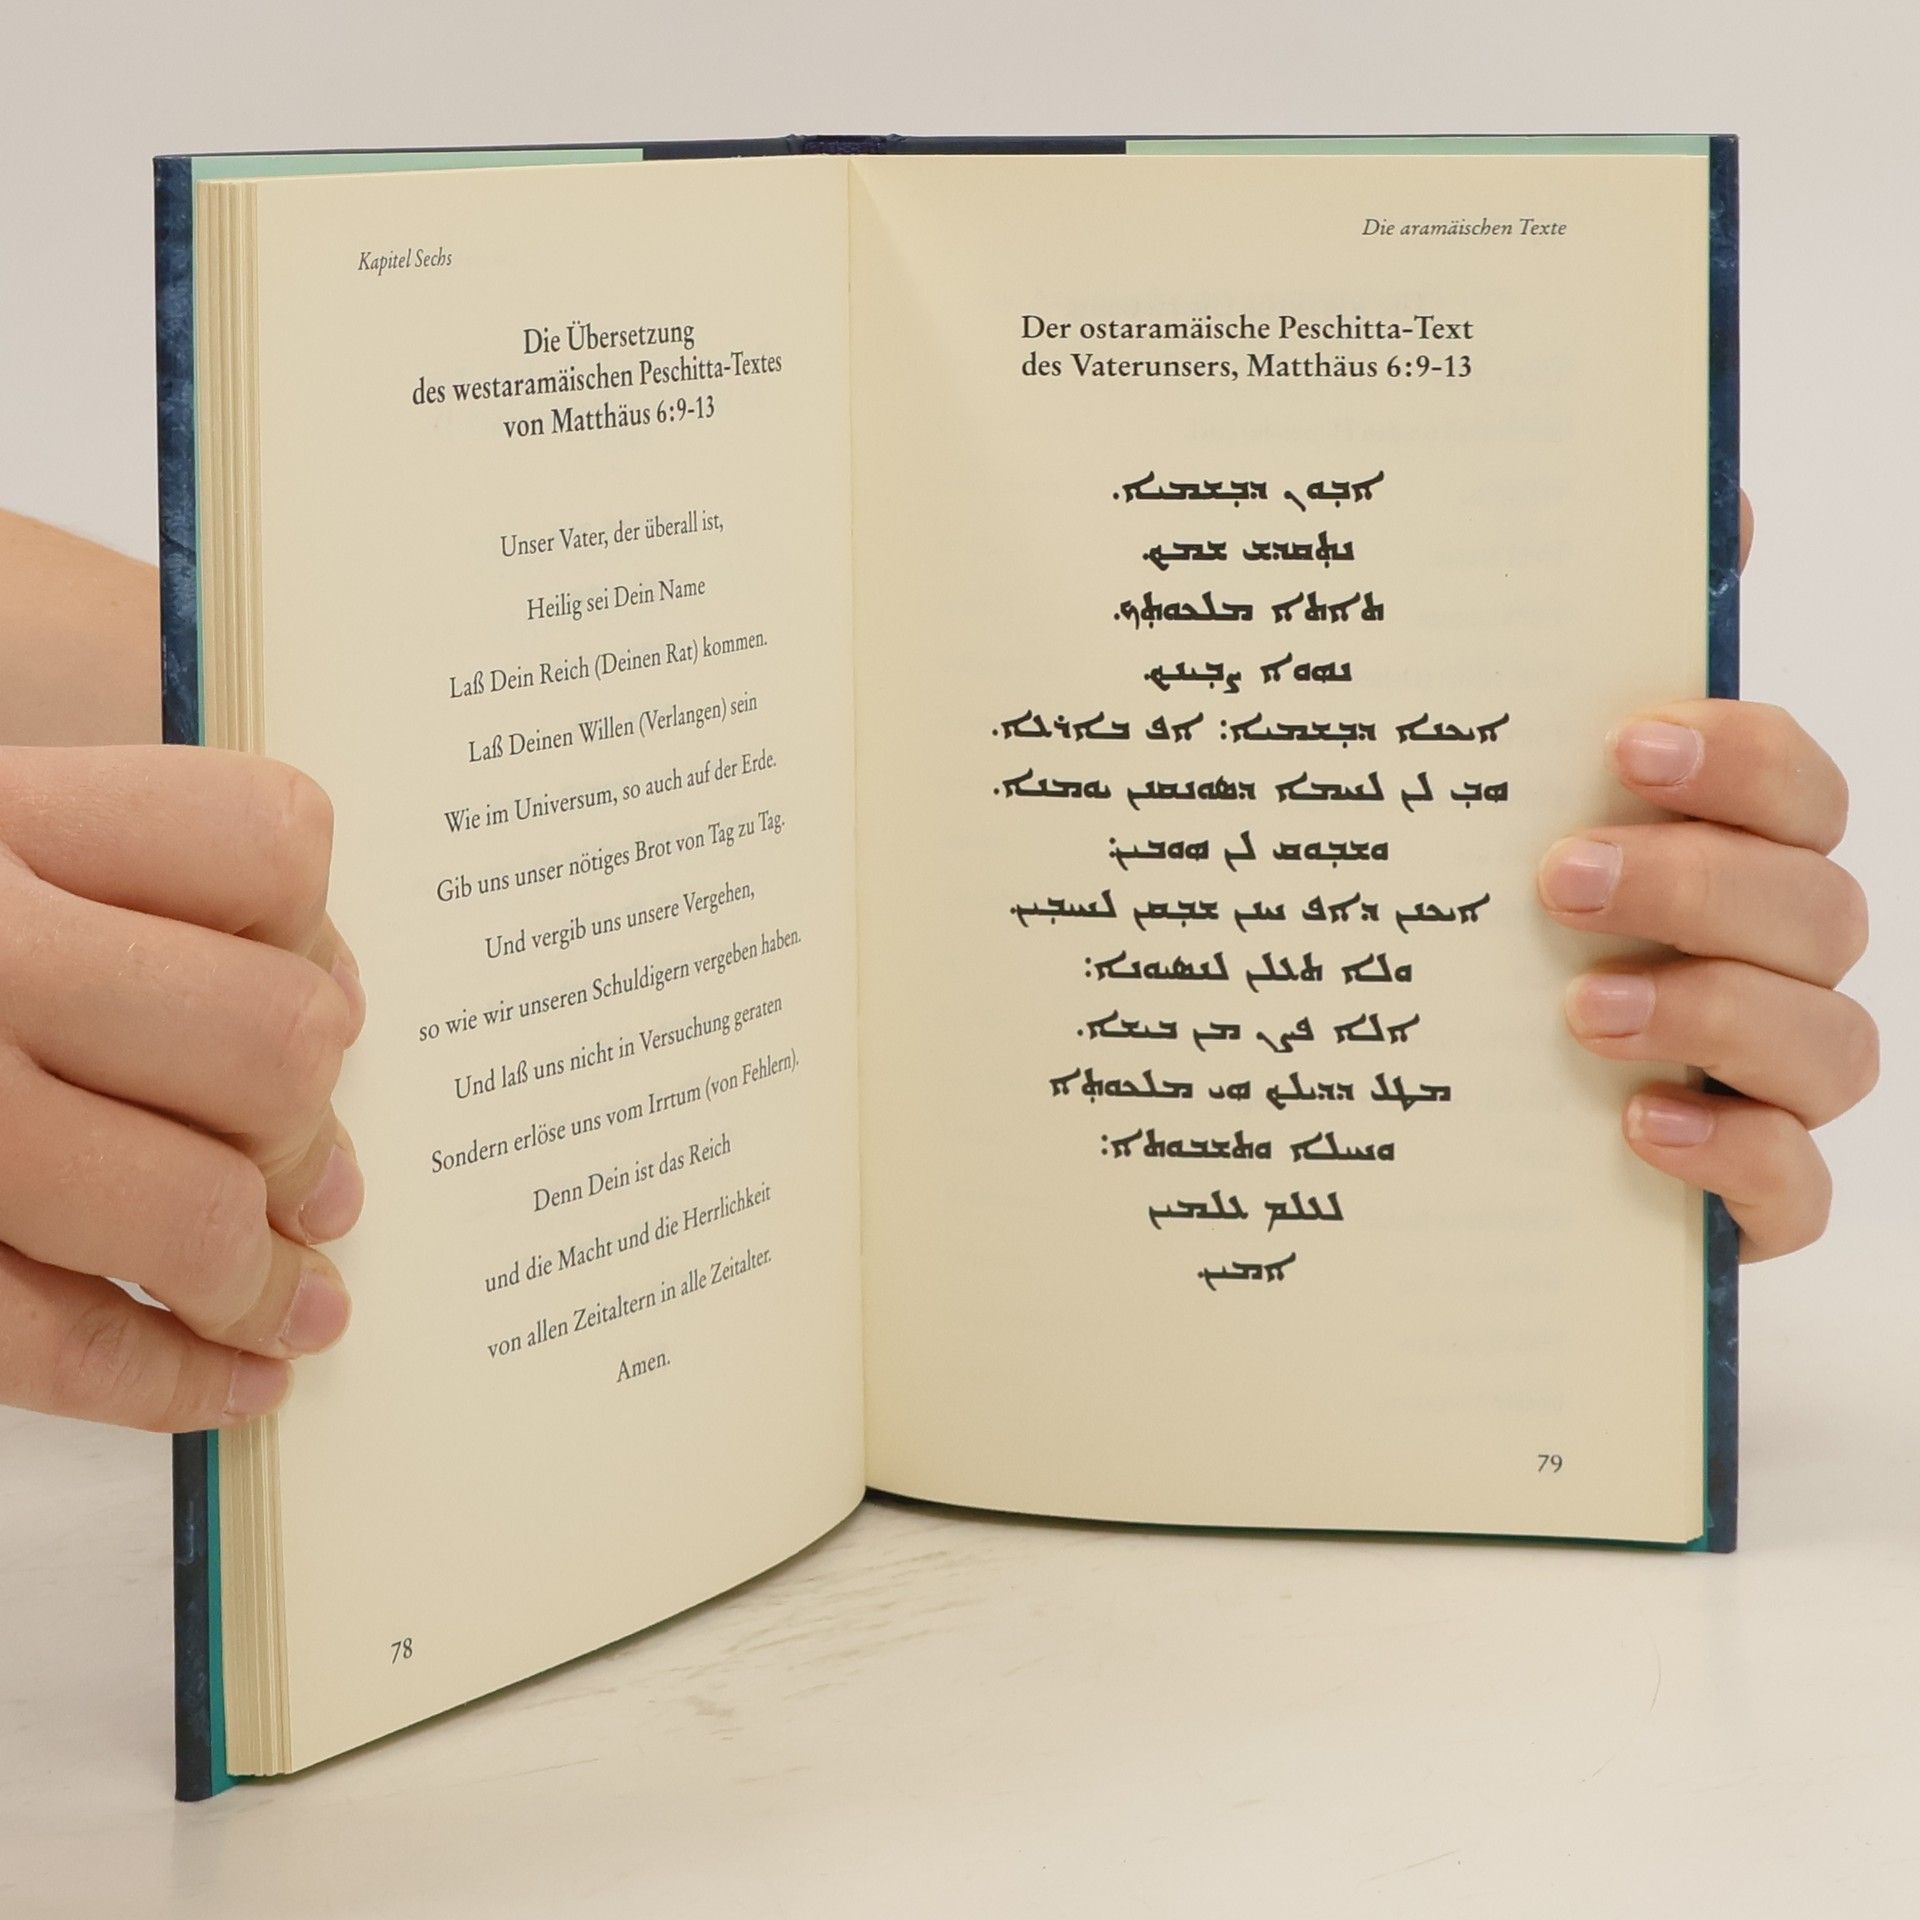 Kapitel Sechs
Die Übersetzung
des westaramäischen Peschitta-Textes
von Matthäus 6:9-13
Unser Vater, der überall ist,
Heilig sei Dein Name
Laß Dein Reich (Deinen Rat) kommen.
Laß Deinen Willen (Verlangen) sein
Wie im Universum, so auch auf der Erde.
Gib uns unser nötiges Brot von Tag zu Tag.
Und vergib uns unsere Vergehen,
so wie wir unseren Schuldigern vergeben haben.
Und laß uns nicht in Versuchung geraten
Sondern erlöse uns vom Irrtum (von Fehlern).
Denn Dein ist das Reich
und die Macht und die Herrlichkeit
von allen Zeitaltern in alle Zeitalter.
Amen.
78
Die aramäischen Texte
Der ostaramäische Peschitta-Text
des Vaterunsers, Matthäus 6:9-13
ܐܒܘܢ ܕܒܫܡܝܐ.
ܢܬܩܕܫ ܫܡܟ.
ܬܐܬܐ ܡܠܟܘܬܟ.
ܢܗܘܐ ܨܒܝܢܟ.
ܐܝܟܢܐ ܕܒܫܡܝܐ: ܐܦ ܒܐܪܥܐ.
ܗܒ ܠܢ ܠܚܡܐ ܕܣܘܢܩܢܢ ܝܘܡܢܐ.
ܘܫܒܘܩ ܠܢ ܚܘܒܝܢ:
ܐܝܟܢܐ ܕܐܦ ܚܢܢ ܫܒܩܢ ܠܚܝܒܝܢ.
ܘܠܐ ܬܥܠܢ ܠܢܣܝܘܢܐ:
ܐܠܐ ܦܨܢ ܡܢ ܒܝܫܐ.
ܡܛܠ ܕܕܝܠܟ ܗܝ ܡܠܟܘܬܐ
ܘܚܝܠܐ ܘܬܫܒܘܚܬܐ:
ܠܥܠܡ ܥܠܡܝܢ
ܐܡܝܢ.
79